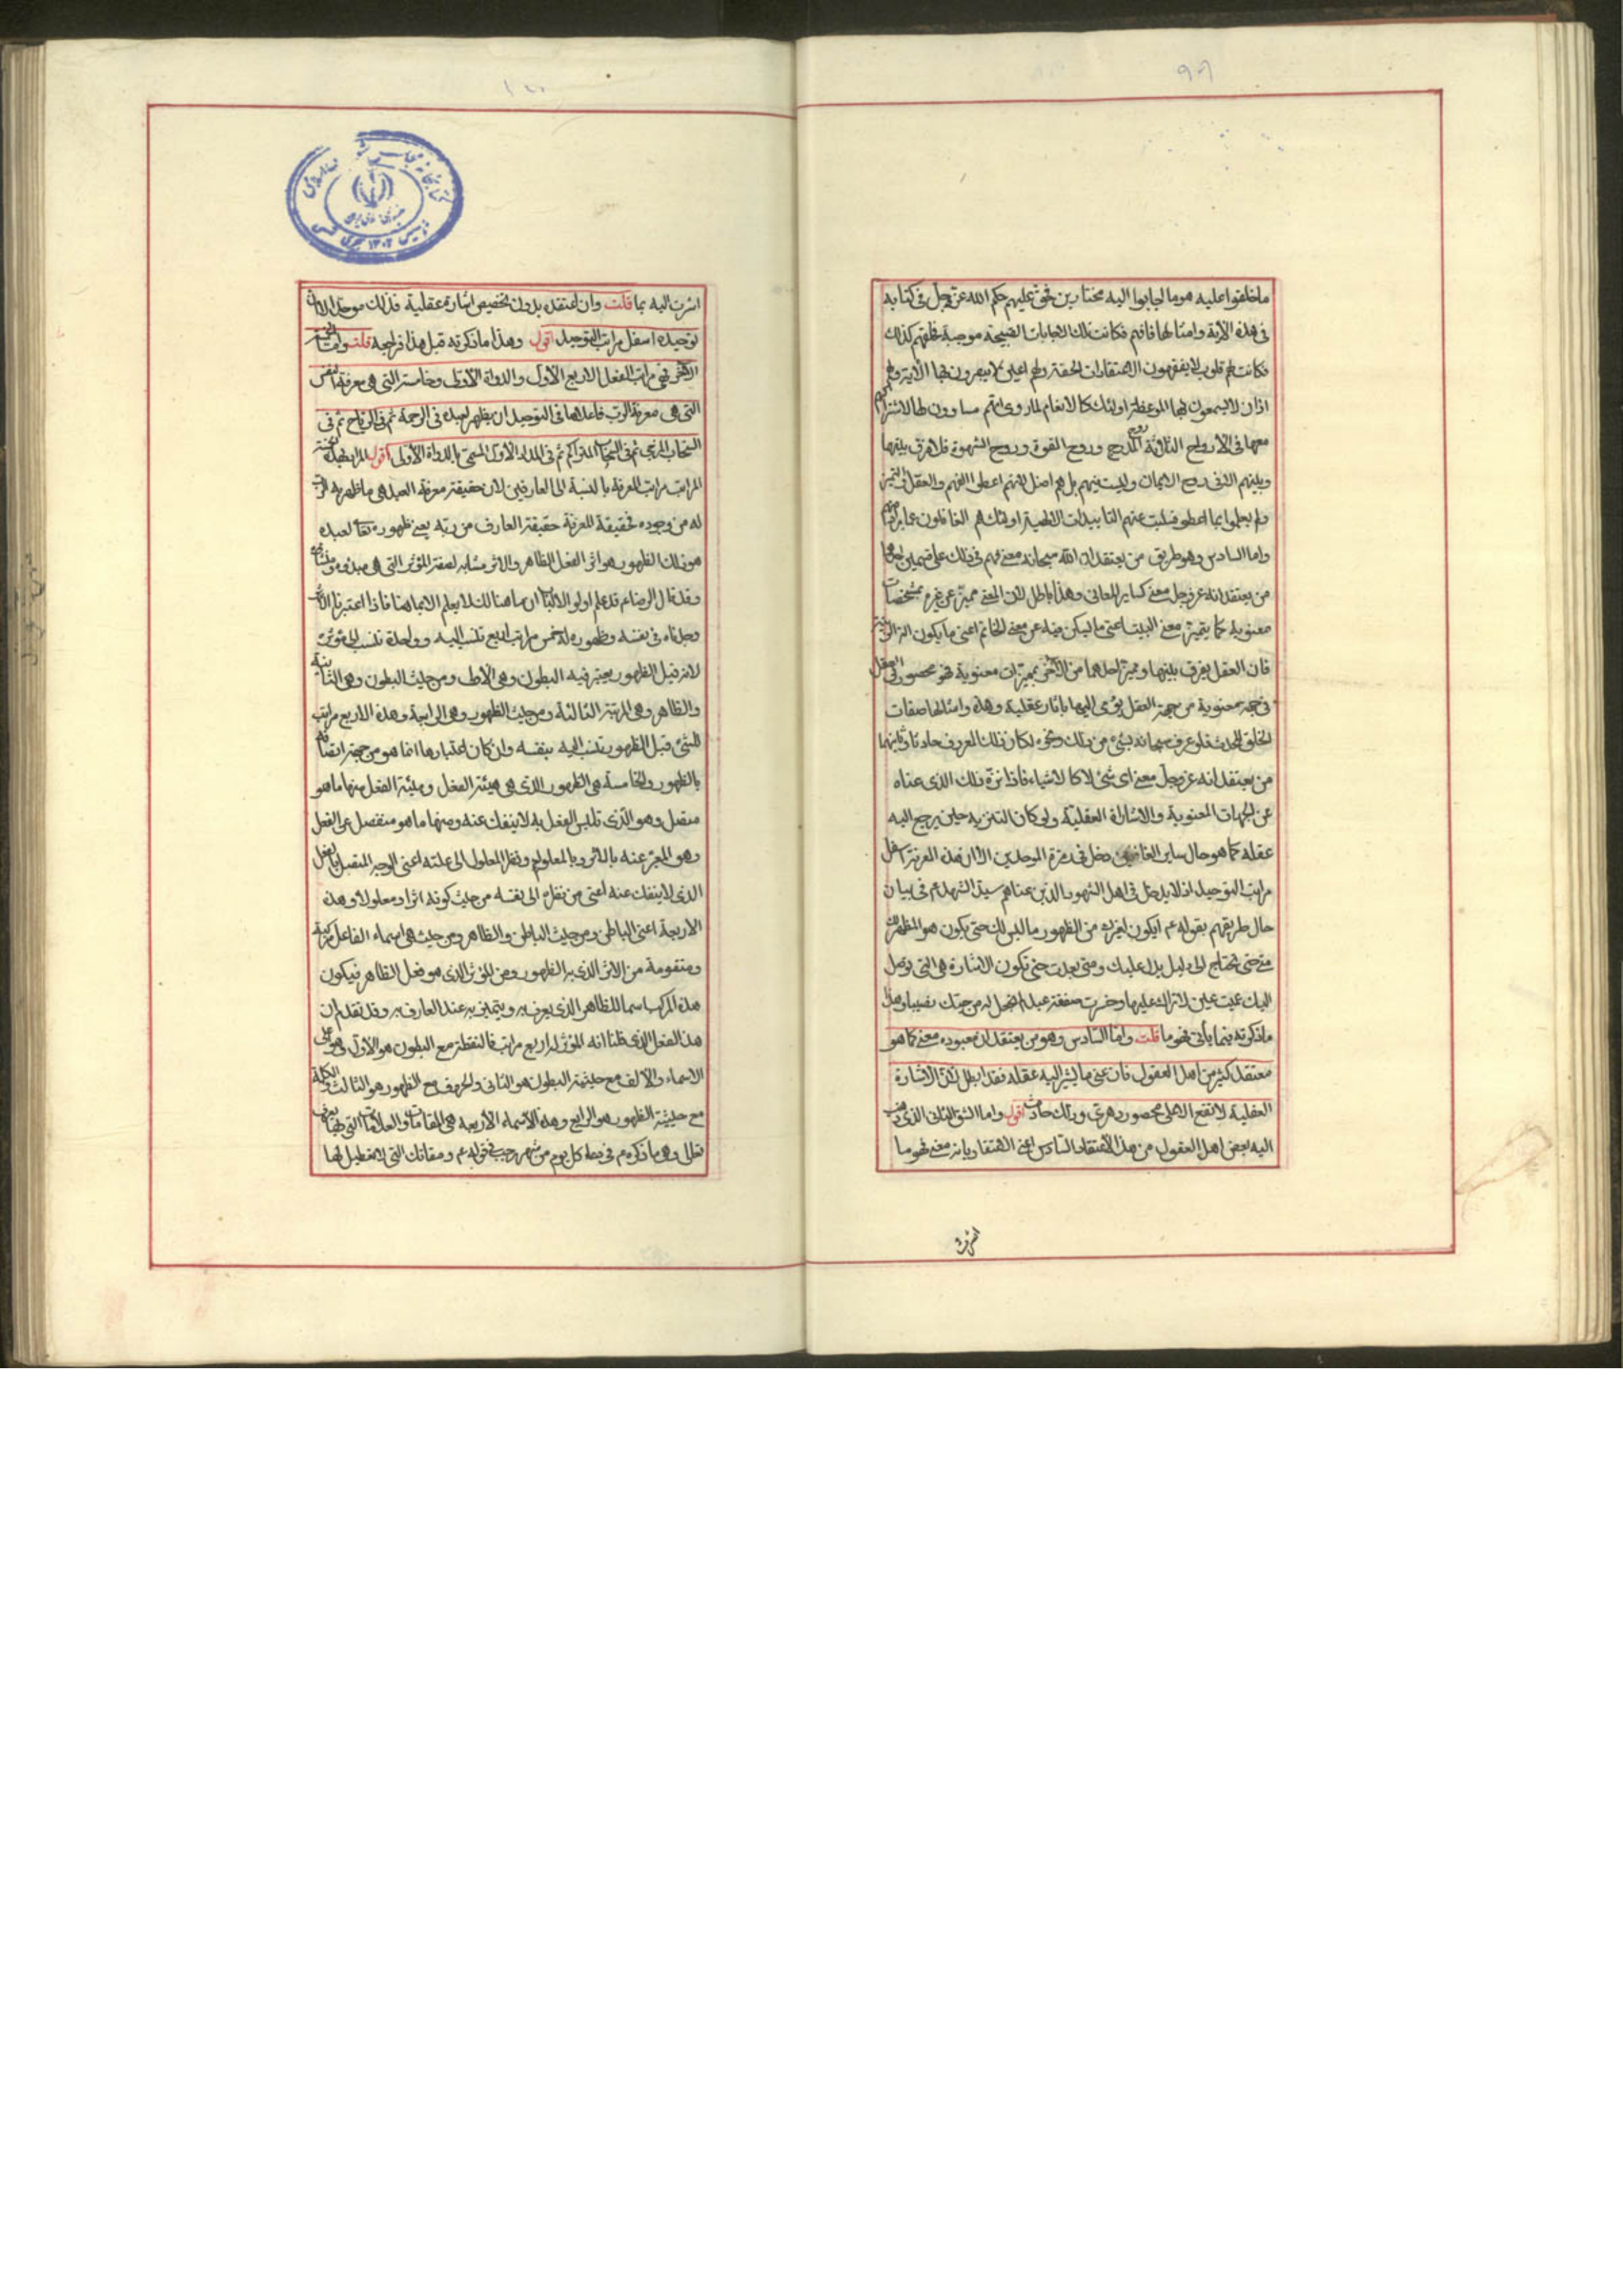 ٩٩
ما خلقوا عليه هو ما اجابوا اليه مختارين فحق عليهم حكم الله عز وجل في كتابه
في هذه الآية وامثالها فافهم فكانت تلك الاجابات القبيحة موجبة لخلقهم كذلك
فكانت لهم قلوب لا يفقهون الاعتقادات الحقة ولهم اعين لا يبصرون بها الآية ولهم
اذان لا يسمعون بها الموعظة اولئك كالانعام لما روى انهم مساوون لها لاشتراكهم
معها في الارواح الثلاثة روح المدرج وروح القوة وروح الشهوة فلا فرق بينها
وبينهم الا في روح الايمان وليست فيهم بل هم اضل لانهم اعطوا الفهم والعقل والتميز
ولم يعملوا بما اعطوا فسلبت عنهم التاييدات الالهية اولئك هم الغافلون عما يراد منهم
واما السادس وهو طريق من يعتقد ان الله سبحانه معنى فهم في ذلك على قسمين احدهما
من يعتقد انه عز وجل معنى كساير المعاني وهذا باطل لان المعنى مميز عن غيره بمشخصات
معنوية كما يتميز معنى البيت اعنى ما ليسكن فيه عن معنى الخاتم اعنى ما يكون الة الزينة
فان العقل يفرق بينها ويميز احدهما من الآخر بمميزات معنوية فهو محصور في العقل
في جهة معنوية من جهة العقل يؤمى اليها باثار عقلية وهذه وامثالها صفات
الخلق المحدث فلو عرف سبحانه بشئ من ذلك ونحوه لكان ذلك المعروف حادثا وثانيهما
من يعتقد انه عز وجل معنى اى شئ لا كالاشياء فاذا نزه ذلك الذى عناه
عن الجهات المعنوية والاشارات العقلية ولو كان التنزيه حين يرجع اليه
عقله كما هو حال ساير العارفين دخل في زمرة الموحدين الا ان هذه المعرفة اسفل
مراتب التوحيد اذ لا يدخل في اهل الشهود الذين عناهم سيد الشهداء ع في بيان
حال طريقهم بقوله ع ايكون لغيرك من الظهور ما ليس لك حتى يكون هو المظهر لك
متى غبت حتى تحتاج الى دليل يدل عليك ومتى بعدت حتى تكون الاشارة هي التي توصل
اليك عميت عين لا تراك عليها رقيبا وخسرت صفقة عبد لم تجعل له من حبك نصيبا ومثل
ما ذكرته فيما يأتي نحو ما قلت واما السادس وهو من يعتقد ان معبوده معنى كما هو
معتقد كثير من اهل العقول فان عنى ما يشير اليه عقله فقد ابطل لان الاشارة
العقلية لا تقع الا على محصور دهرى وذلك حادث اقول واما الشق الثانى الذى ذهب
اليه بعض اهل العقول من هذا الاعتقاد السادس اعنى الاعتقاد بانه معنى نحو ما
اشرت
١٠٠
اشرت اليه بما قلت وان اعتقده بدون تخصيص اشارة عقلية فذلك موحد الا ان
توحيده اسفل مراتب التوحيد اقول وهذا ما ذكرته قبل هذا فراجعه قلت
الآخر فهي مراتب الفعل الاربع الاول والدواة الاولى وخامسة التي هي معرفة النفس
التي هي معرفة الرب فاعلاها في التوحيد ان يظهر لعبده في الرحمة ثم في الرياح ثم في
السحاب المزجى ثم في السحاب المتراكم ثم في المداد الاول المسمى بالدواة الاولى اقول المراد بهذه الخمسة
المراتب مراتب المعرفة بالنسبة الى العارفين لان حقيقة معرفة العبد هي ما ظهر به الرب
له من وجوده فحقيقة المعرفة حقيقة العارف من ربه يعنى ظهوره تعا لعبده
هو ذلك الظهور هو اثر الفعل الظاهر والاثر مشابه لصفة المؤثر التي هي مبدؤه ومنشأه
وقد قال الرضا ع قد علم اولو الالباب ان ما هنالك لا يعلم الا بما هنا فاذا اعتبرنا الاثر
وجدناه في نفسه وظهوره له خمس مراتب اربع تنسب اليه وواحدة تنسب الى مؤثره
لانه قبل الظهور يعتبر فيه البطون وهي الاولى ومن حيث البطون وهي الثانية
والظاهر وهي المرتبة الثالثة ومن حيث الظهور وهي الرابعة وهذه الاربع مراتب
للشئ قبل الظهور تنسب اليه بنفسه وان كان اعتبارها انما هو من جهة اتصافه
بالظهور والخامسة هي الظهور الذى هي هيئة الفعل وهيئة الفعل منها ما هو
متصل وهو الذى تلبس الفعل به لا ينفك عنه ومنها ما هو منفصل عن الفعل
وهو المعبر عنه بالاثر وبالمعلول ونظر المعلول الى علته اعنى الوجه المتصل بالفعل
الذى لا ينفك عنه اعنى من نظره الى نفسه من حيث كونه اثرا ومعلولا وهذه
الاربعة اعنى الباطن ومن حيث الباطن والظاهر ومن حيث هي اسماء الفاعل مركبة
ومتقومة من الاثر الذى به الظهور ومن المؤثر الذى هو فعل الظاهر فيكون
هذه المركب اسما للظاهر الذى يعرف به ويتميز به عند العارف به وقد تقدم ان
هذا الفعل الذى قلنا انه المؤثر له اربع مراتب فالنقطة مع البطون هو الاول وهو اعلى
الاسماء والالف مع حيثية البطون هو الثاني والحروف مع الظهور هو الثالث والكلمة
مع حيثية الظهور هو الرابع وهذه الاسماء الاربعة هي المقامات والعلامات التي لها
تعالى وهي ما ذكره ع في دعاء كل يوم من شهر رجب في قوله ع ومقاماتك التي لا تعطيل لها